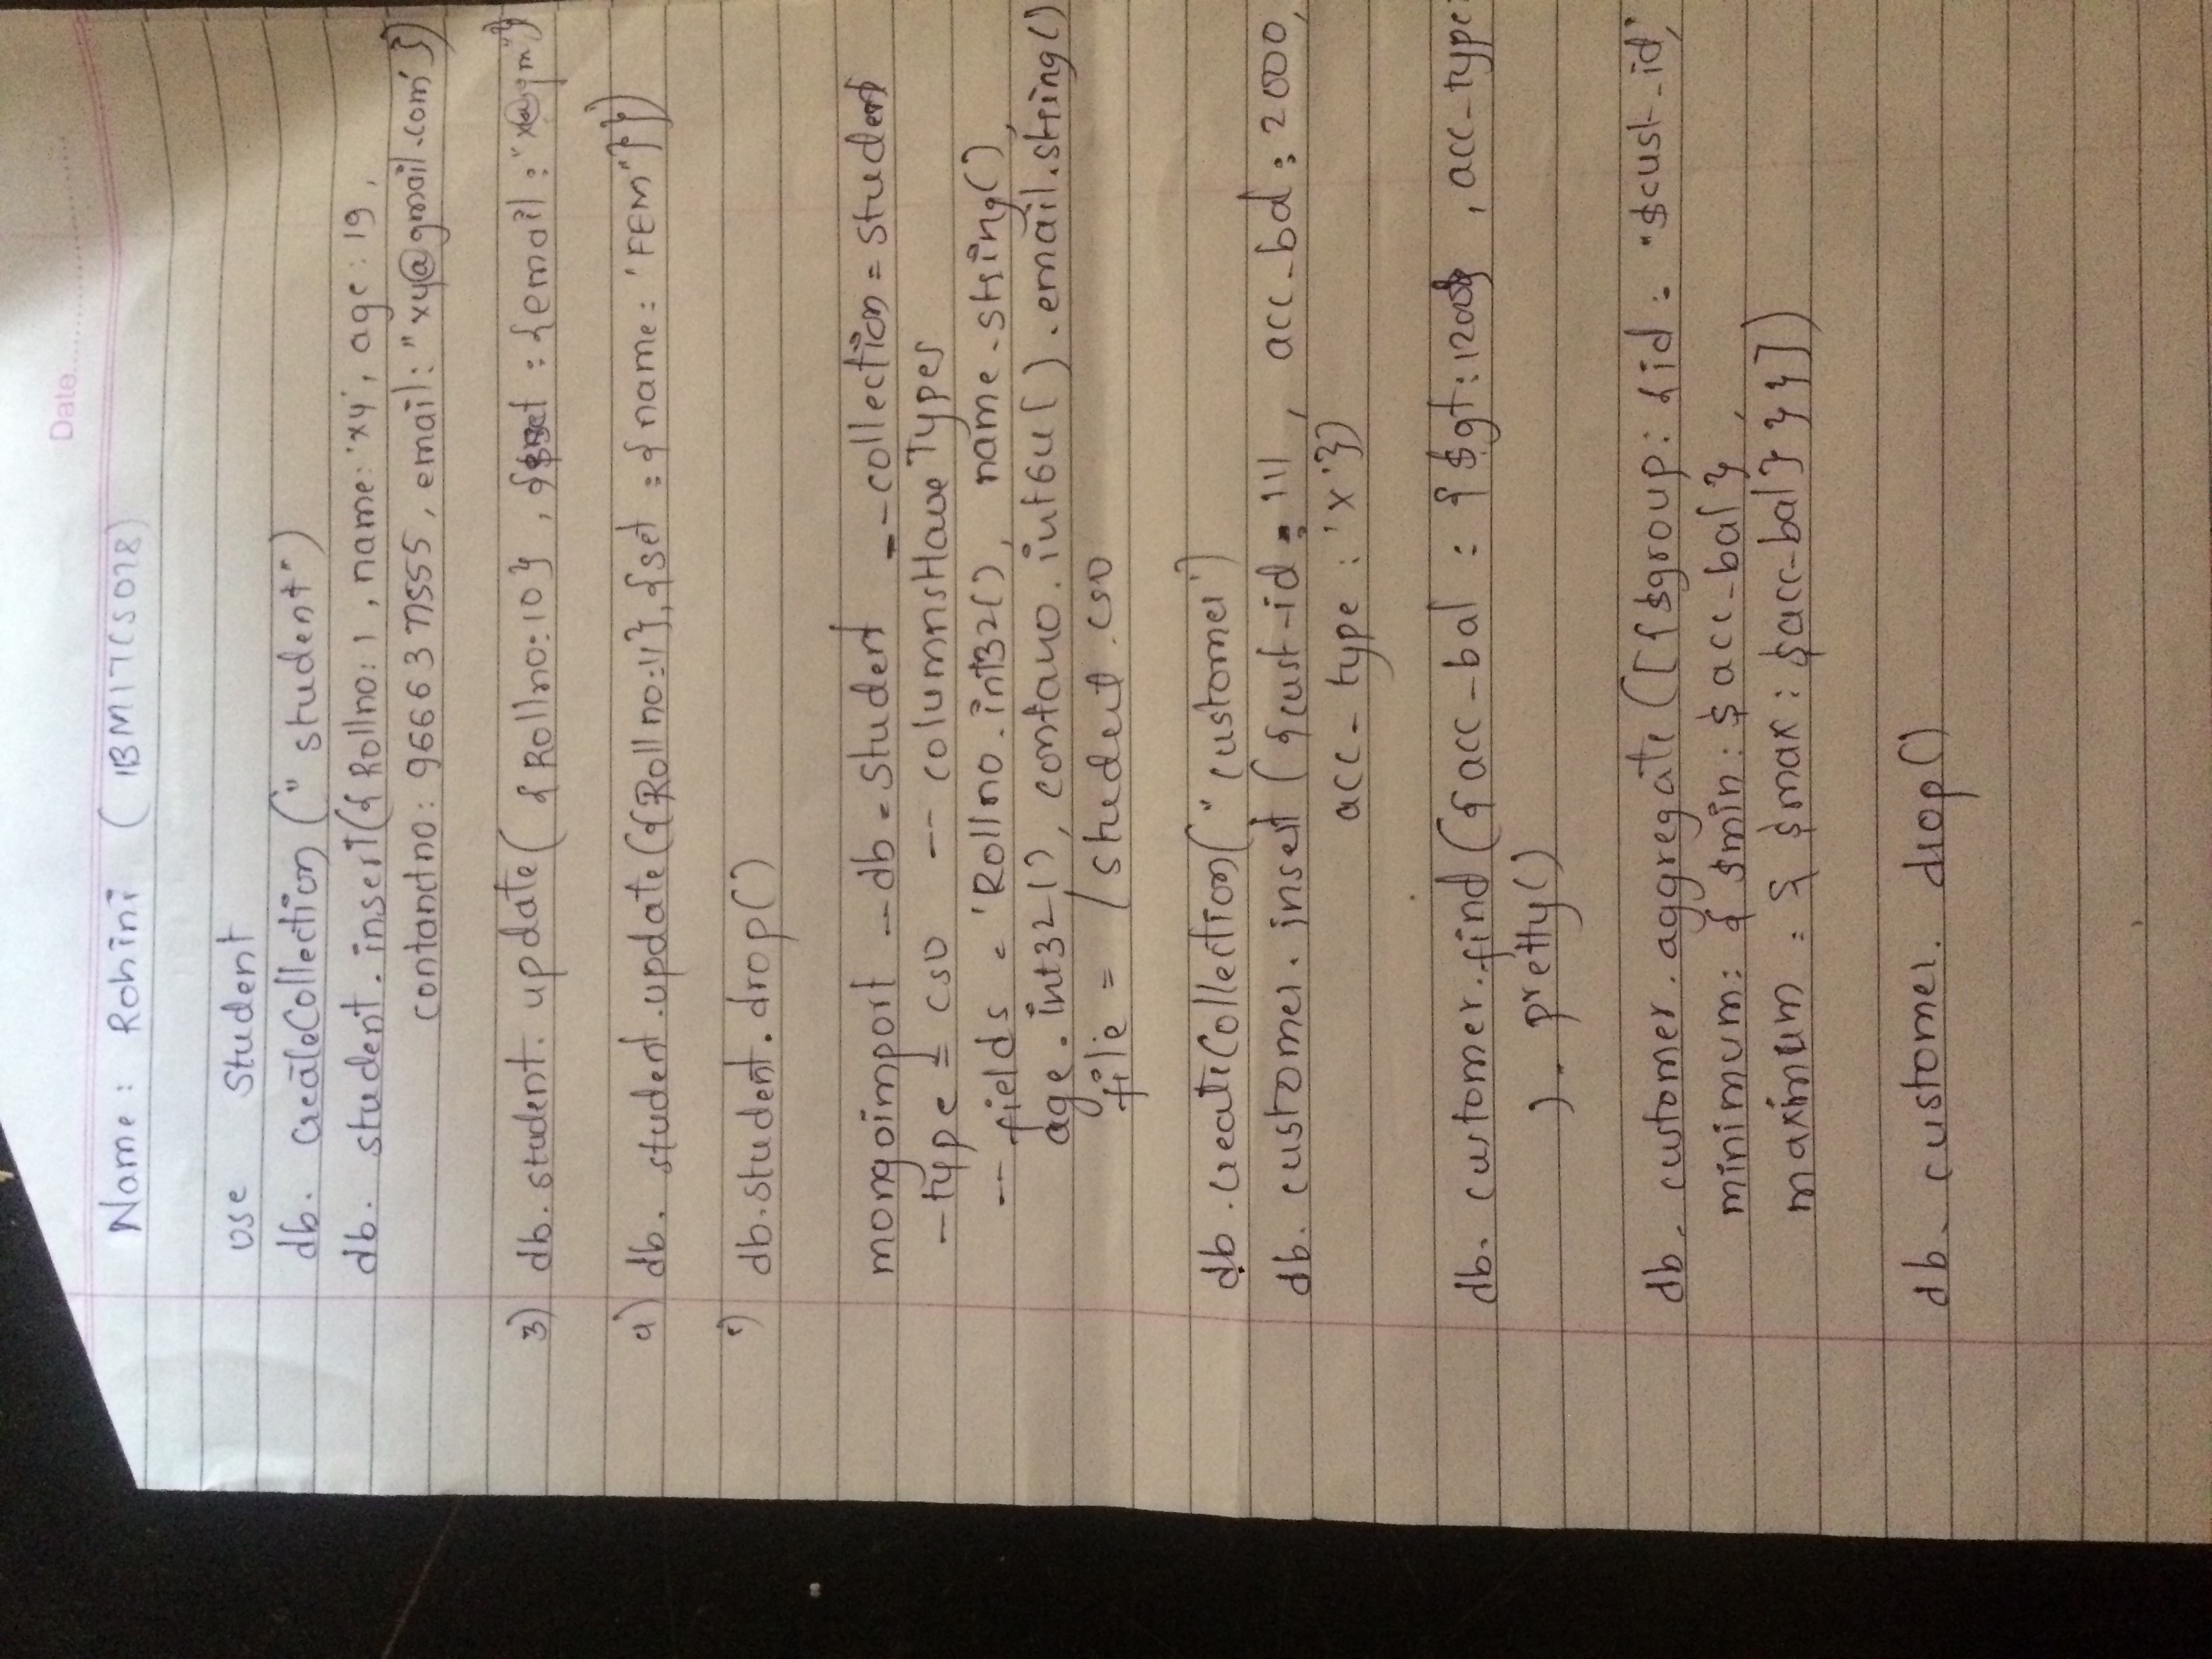 Date
Name: Rohini (1BM17CS078)
use Student
db. createCollection ("student")
db. student.insert({Rollno: 1, name: 'xy', age: 19,
contanctno: 9666377555, email: "xy@gmail.com'})
3) db.student. update( {Rollno:10} , {$set : {email: "x@gm"}
db. student.update({Rollno:11}, {set : {name: 'FEM"}})
db.student.drop()
mongoimport --db=Student --collection = student
-type = csv -- columnsHaveTypes
-- fields = 'Rollno.int32(), name.string(),
age.int32(), .int64().email.string()
file = /student.csv
db.createCollection("customer')
db. customer. insert ({cust-id: 111, acc-bal: 2000,
acc-type : 'X'})
db. customer.find ({acc-bal : {$gt: 1200} , acc-type:
). pretty()
db. customer.aggregate ([{$group: {id : "$cust-id",
minimum: { $min: $acc-bal},
maximum : { $max: $acc-bal} } } ])
db. customer. drop()